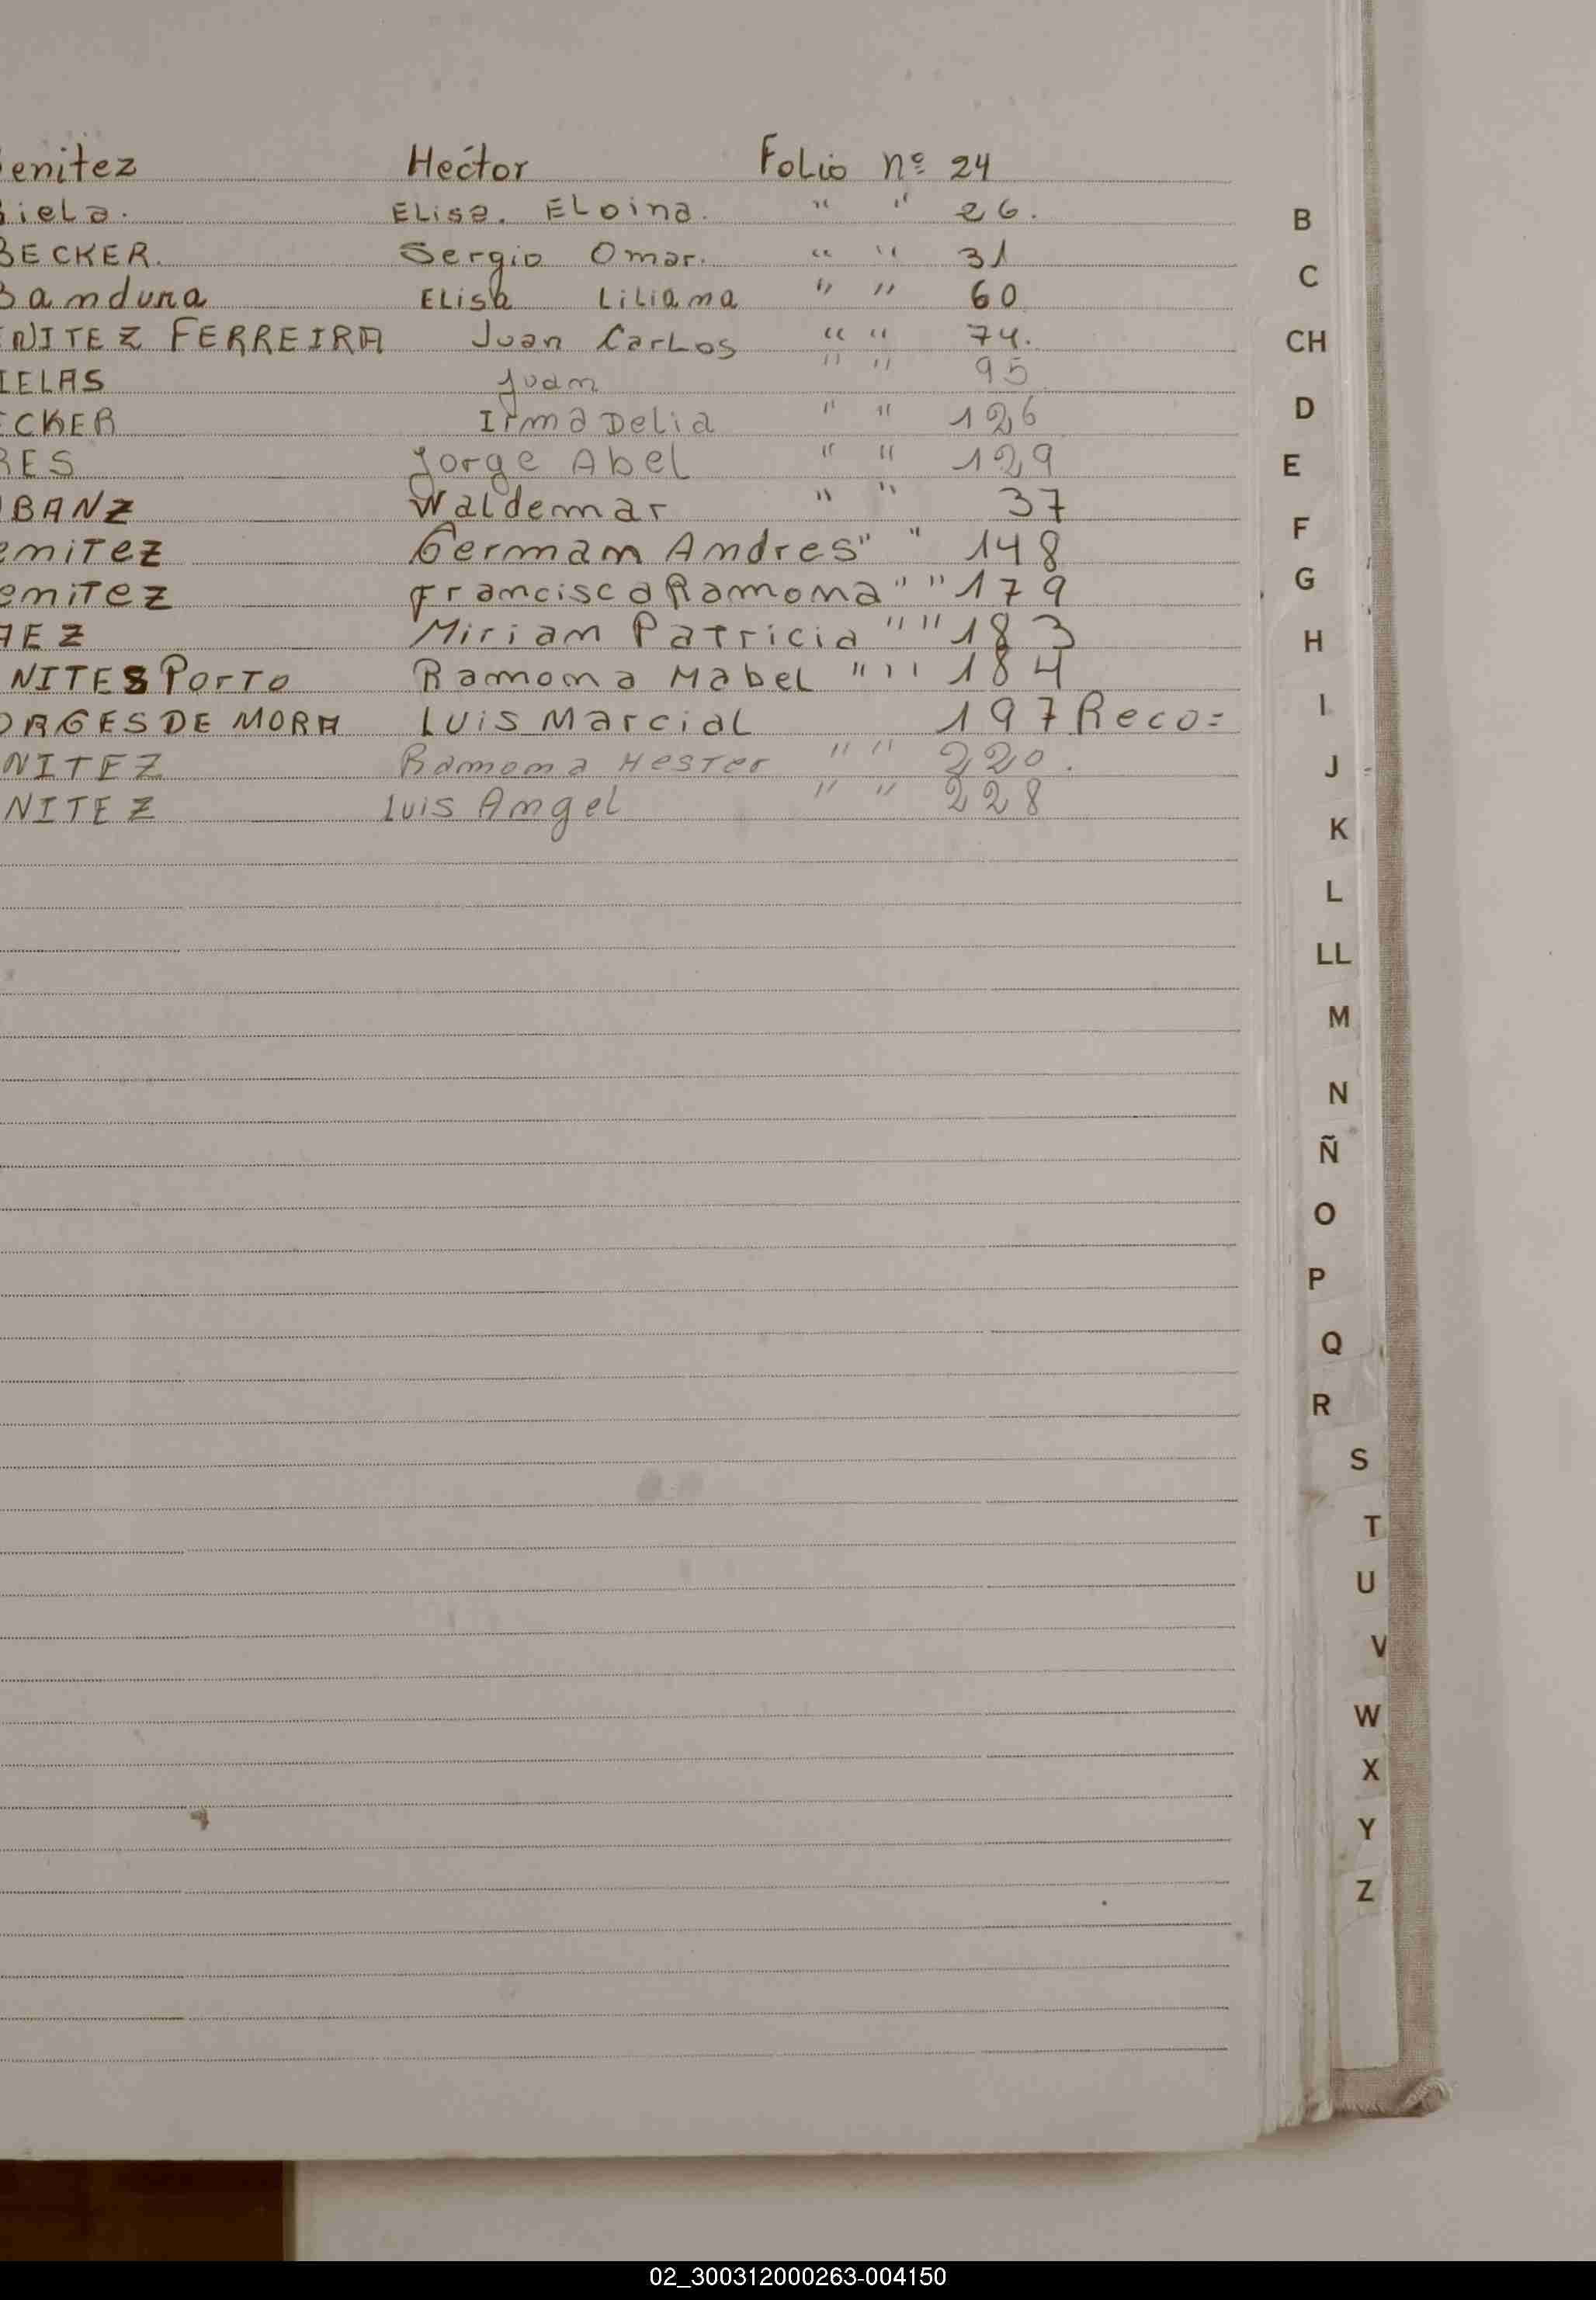 enitez Hector Folio nº 24
iela. Elisa. Eloina. " " 26.
BECKER. Sergio Omar. " " 31
Bandura Elisa Liliana " " 60
ENITEZ FERREIRA Juan Carlos " " 74.
IELAS Juan " " 95
ECKER Irma Delia " " 126
RES Jorge Abel " " 129
BANZ Waldemar " " 37
enitez German Andres " " 148
enitez Francisca Ramona " " 179
AEZ Miriam Patricia " " 183
NITES Porto Ramona Mabel " " 184
ORGES DE MORA Luis Marcial 197 Reco=
NITEZ Ramona Hester " " 220.
NITEZ Luis Angel " " 228
B
C
CH
D
E
F
G
H
I
J
K
L
LL
M
N
Ñ
O
P
Q
R
S
T
U
V
W
X
Y
Z
02_300312000263-004150